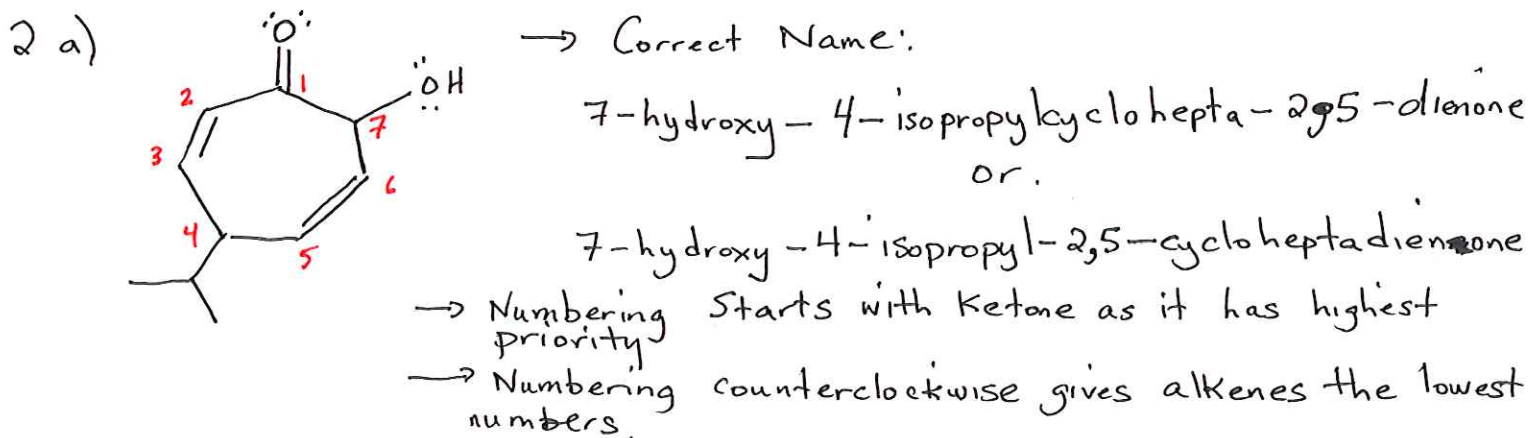 2 a)
:O:
1
2
3
4
5
6
7
OH
→ Correct Name:
7-hydroxy-4-isopropylcyclohepta-2,5-dienone
or.
7-hydroxy-4-isopropyl-2,5-cycloheptadienone
→ Numbering Starts with Ketone as it has highest
priority
→ Numbering counterclockwise gives alkenes the lowest
numbers.